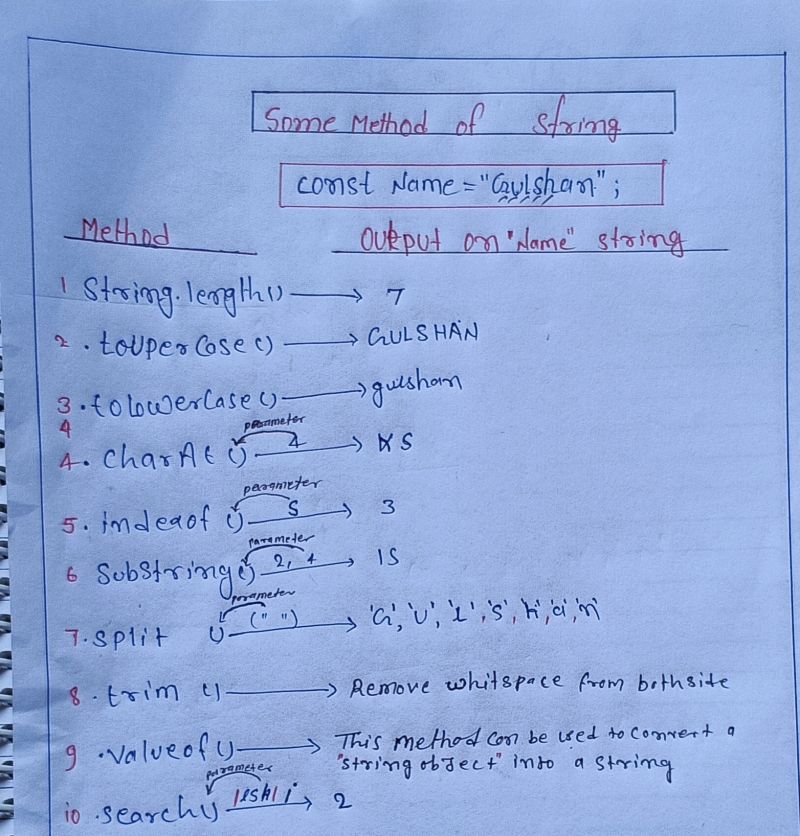 Some Method of string
const Name = "Gulshan";
Method Output on "Name" string
1 String.length() → 7
2. toUperCase() → GULSHAN
3. tolowerCase() → gulshan
4
parameter
4. CharAt () 4 → S
parameter
5. indexof () S → 3
parameter
6 SubString() 2, 4 → lS
parameter
7. split () (" ") → 'G', 'U', 'L', 'S', 'h', 'a', 'n'
8. trim () → Remove whitspace from bothsite
9 .valueof() → This method can be used to convert a
"string object" into a string
parameter
10 .search() /lsh/i → 2